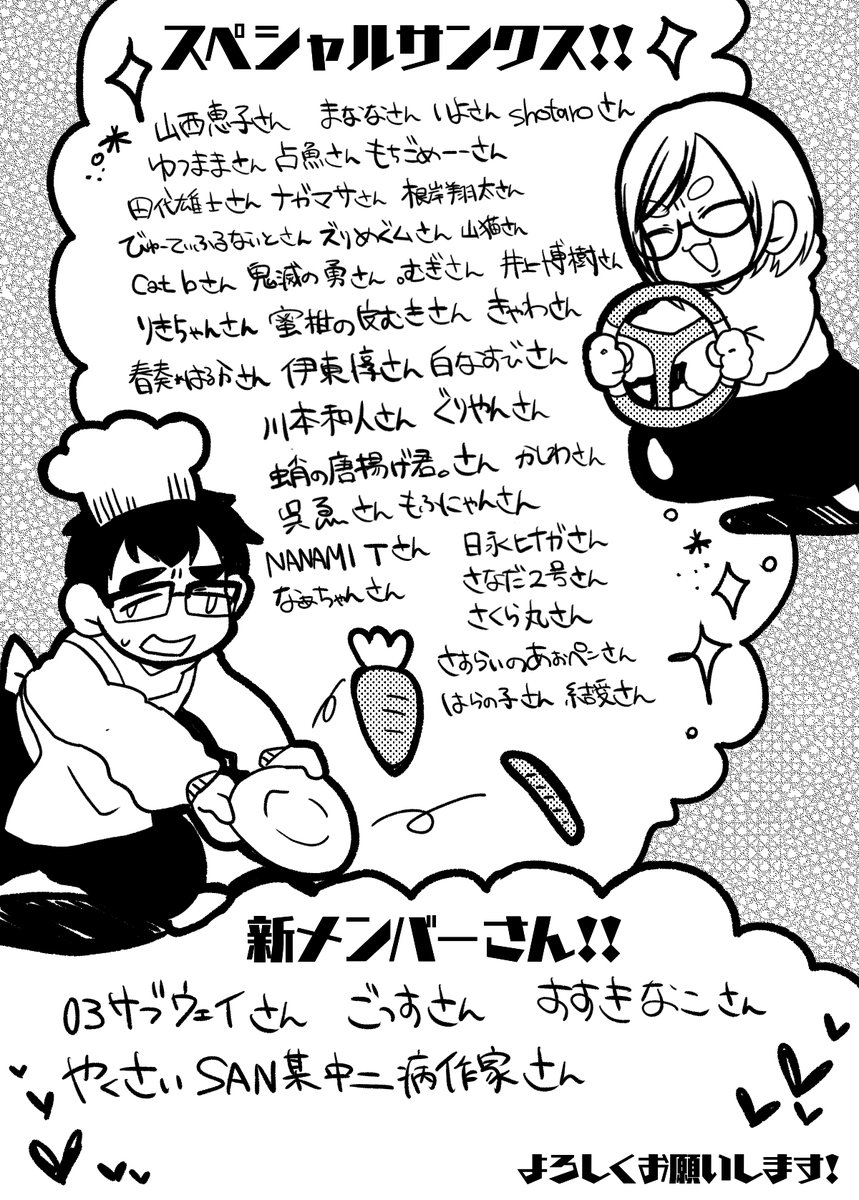 スペシャルサンクス!!
山西恵子さん まななさん いよさん shotaroさん
ゆつままさん 占魚さん もちごめーーさん
田代雄士さん ナガマサさん 根岸翔太さん
びゅーてぃふるないとさん ズりめぐムさん 山猫さん
Cat bさん 鬼滅の勇さん 。むぎさん 井上博樹さん
りきちゃんさん 蜜柑の皮むきさん きゃわさん
春奏*はるかさん 伊東淳さん 白なすびさん
川本和人さん ぐりやんさん
蛸の唐揚げ君。さん かしわさん
呉ゑさん もふにゃんさん
NANAMI Tさん 日永ヒナガさん
なぁちゃんさん さなだ2号さん
さくら丸さん
さすらいのあおペンさん
はらの子さん 結愛さん
新メンバーさん!!
03サブウェイさん ごっすさん すすきなこさん
やくさいSAN集中二病作家さん
よろしくお願いします!